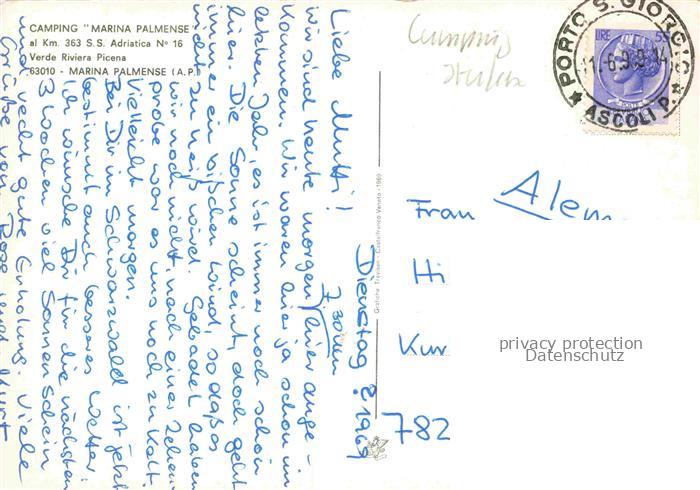 CAMPING "MARINA PALMENSE"
al Km. 363 S.S. Adriatica Nº 16
Verde Riviera Picena
63010 - MARINA PALMENSE (A.P.)
Camping
Italien
PORTO S. GIORGIO
ASCOLI P.
LIRE 55
Dienstag
1969
Liebe Mutti!
wir sind heute morgen hier ange-
kommen. Wir waren hier ja schon im
letzten Jahr, es ist immer noch schön
hier. Die Sonne scheint, doch geht
immer ein bißchen Wind, so daß es
nicht zu heiß wird. Gebadet haben
wir noch nicht, nach einer Zehen
probe war es uns noch zu kalt.
Vielleicht morgen.
Bei Dir im Schwarzwald ist jetzt
bestimmt auch besseres Wetter.
Ich wünsche Dir für die nächsten
3 Wochen viel Sonnenschein
und recht gute Erholung. Viele
Grüße von Rose und Kurt
Grafiche Trevisan - Castelfranco Veneto - 1969
Alem
Frau
Hi
Kur
782
privacy protection
Datenschutz